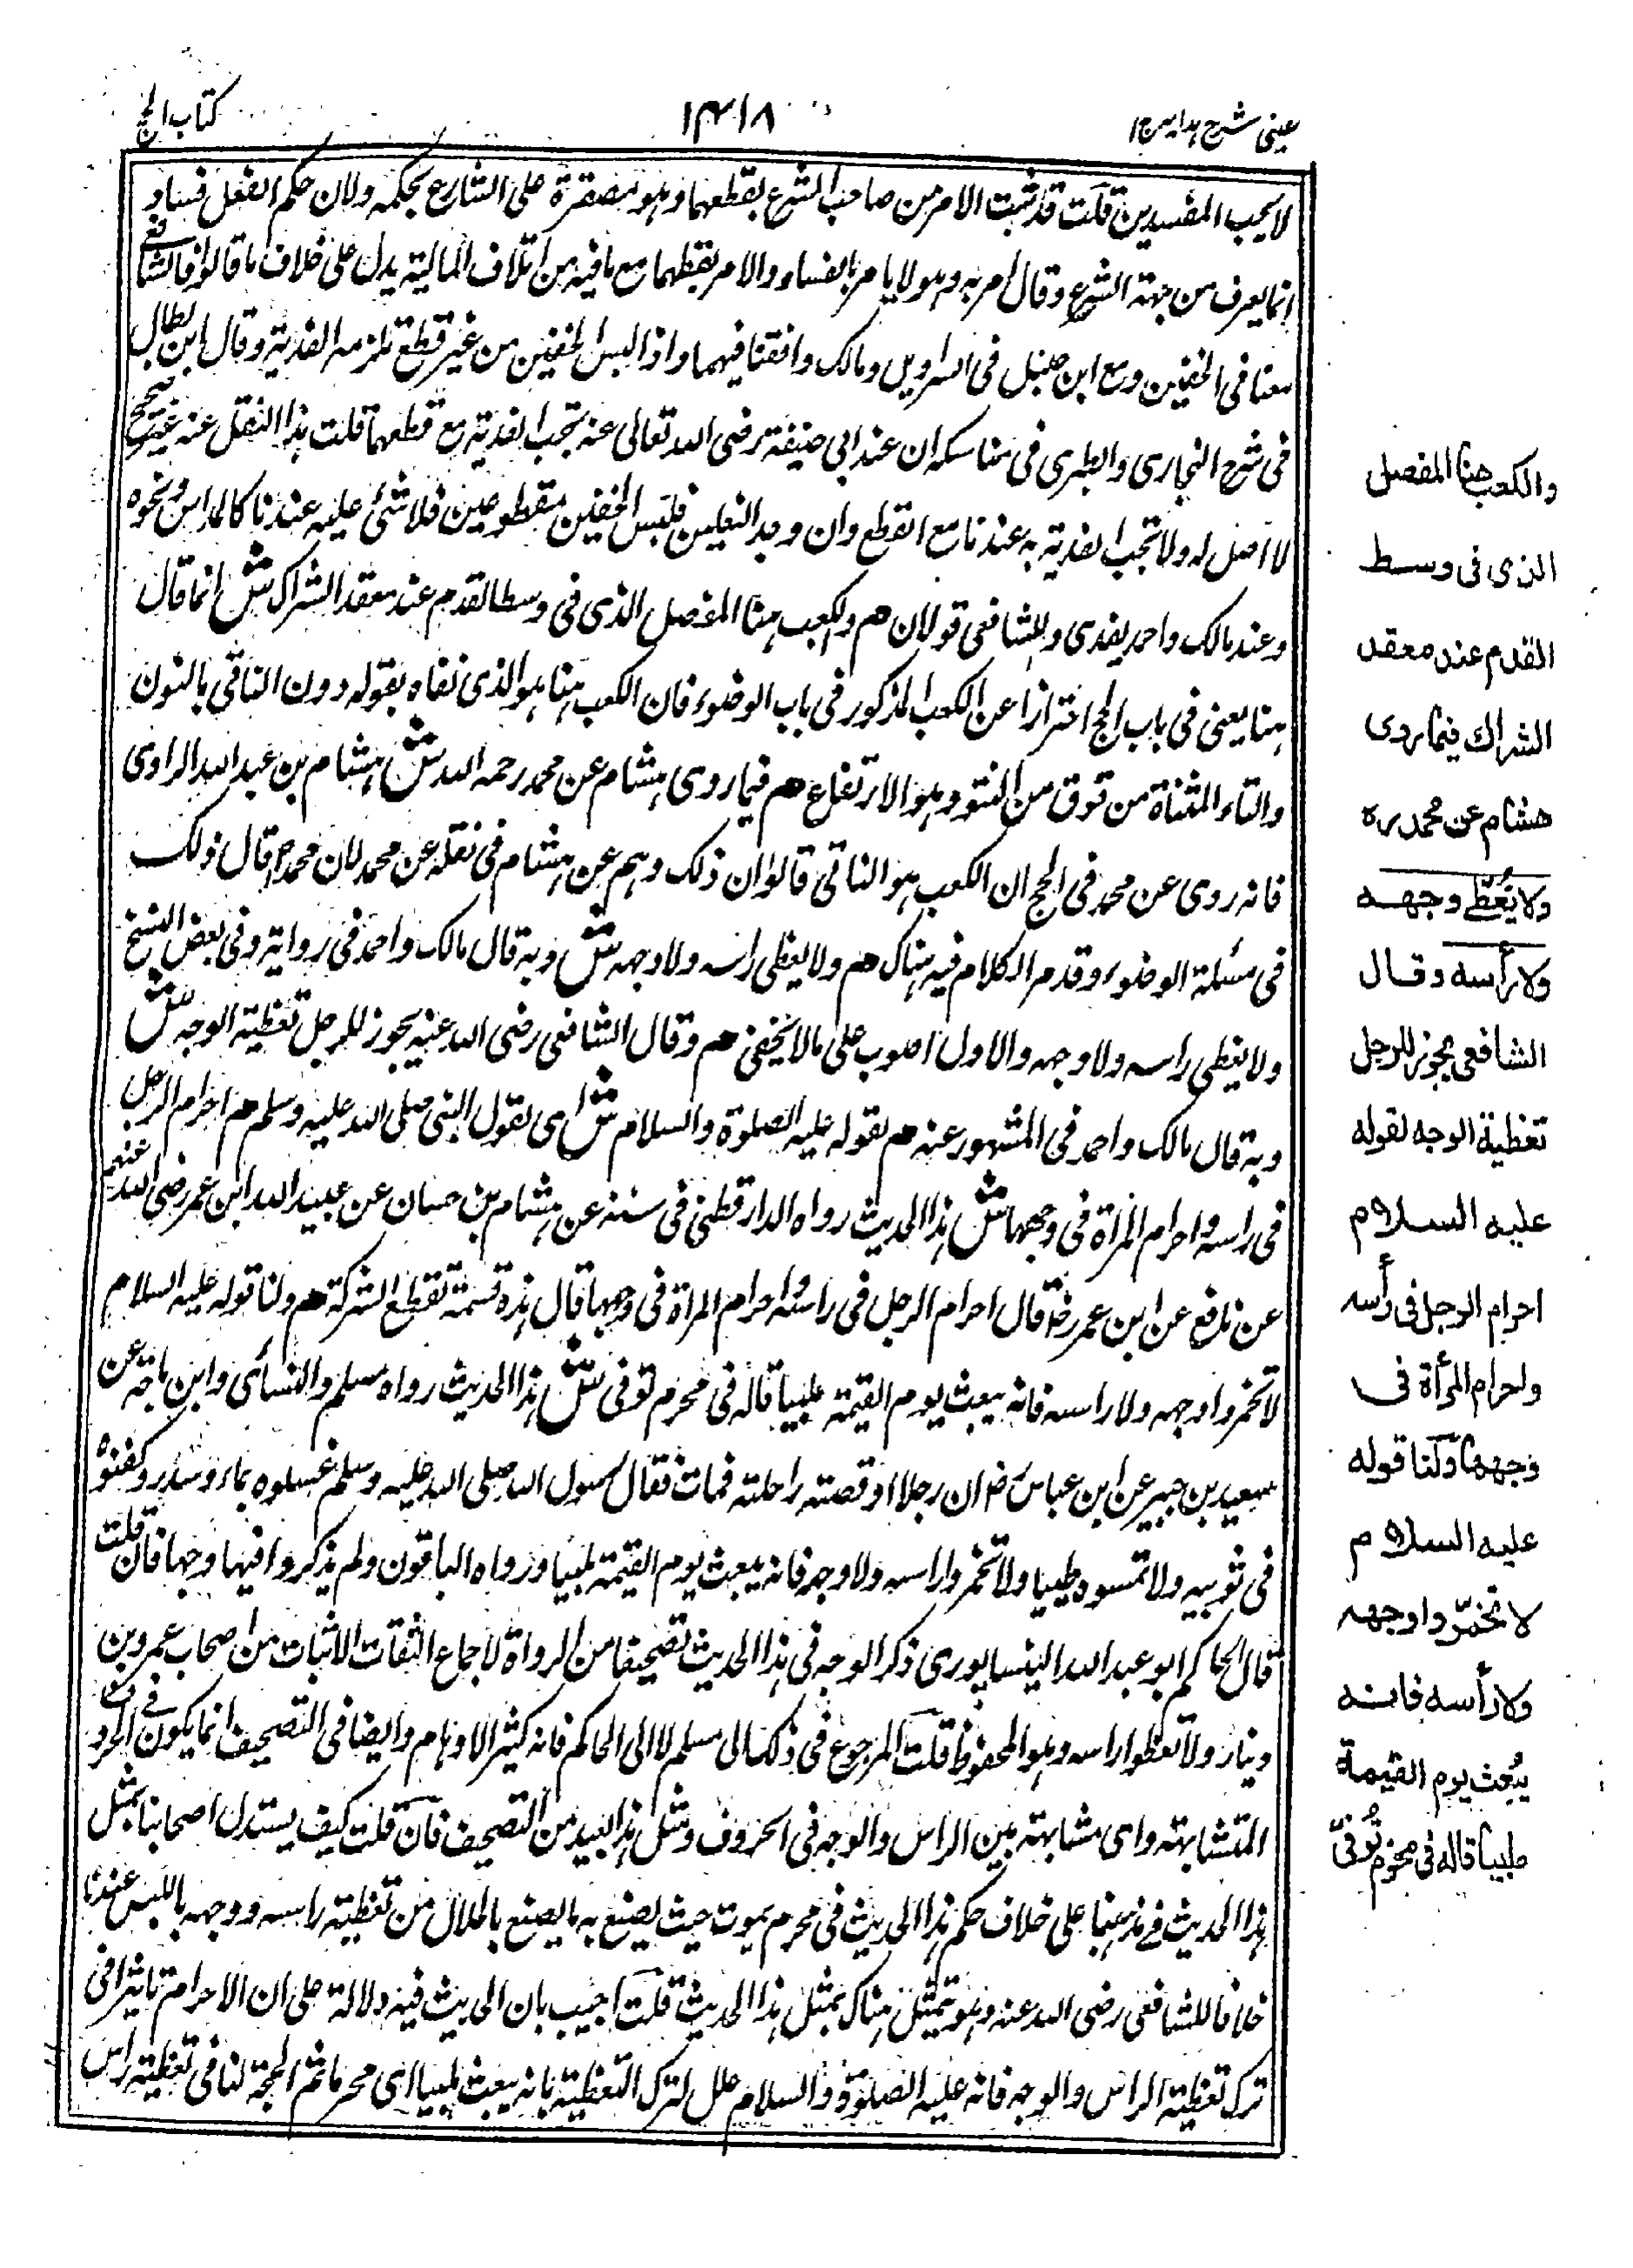 عینی شرح ہدایہ ج۱
۱۴۱۸
کتاب الحج
لا یحب المفسدین قلت قد ثبت الامر من صاحب الشرع بقطعهما وہو مصقرة علی الشارع بحکمہ ولان حکم الفعل فساد
انما یعرف من جہة الشرع وقال امر بہ وہو لا یامر بالفساد والامر بقطعہما مع ما فیہ من اتلاف المالیة یدل علی خلاف ما قالوا فالشافعی
معنا فی الخفین ومع ابن حنبل فی السراویل ومالک وافقنا فیہما واذا لبس الخفین من غیر قطع تلزمہ الفدیة وقال ابن بطال
فی شرح البخاری والطبری فی مناسکہ ان عند ابی حنیفة رضی اللہ تعالی عنہ تجب الفدیة مع قطعہما قلت ہذا النقل عنہ غیر صحیح
لا اصل لہ ولا تجب الفدیة بہ عندنا مع القطع وان وجد النعلین فلبس الخفین مقطوعین فلا شئ علیہ عندنا کالمداس ونحوہ
وعند مالک واحمد یفدی وللشافعی قولان ھم والکعب ہنا المفصل الذی فی وسط القدم عند معقد الشراک ش انما قال
ہنا یعنی فی باب الحج احترازا عن الکعب المذکور فی باب الوضوء فان الکعب ہنا ہو الذی نفاہ بقولہ دون الناتی بالنون
والتاء المثناة من فوق من النتو وہو الارتفاع ھم فیما روی ہشام عن محمد رحمہ اللہ ش ہشام بن عبد اللہ الراوی
فانہ روی عن محمد فی الحج ان الکعب ہو الناتی قالوا ان ذلک وہم عن ہشام فی نقلہ عن محمد لان محمدا قال ذلک
فی مسئلة الوضوء وقد مر الکلام فیہ ہناک ھم ولا یغطی راسہ ولا وجہہ ش وبہ قال مالک واحمد فی روایة وفی بعض النسخ
ولا یغطی راسہ ولا وجہہ والاول اصوب علی ما لا یخفی ھم وقال الشافعی رضی اللہ عنہ یجوز للرجل تغطیة الوجہ ش
وبہ قال مالک واحمد فی المشہور عنہ ھم لقولہ علیہ الصلوة والسلام ش ای لقول النبی صلی اللہ علیہ وسلم ھم احرام الرجل
فی راسہ واحرام المرأة فی وجہہا ش ہذا الحدیث رواہ الدارقطنی فی سننہ عن ہشام بن حسان عن عبید اللہ ابن عمر رضی اللہ عنہم
عن نافع عن ابن عمر رض قال احرام الرجل فی راسہ واحرام المرأة فی وجہہا قال ہذہ قسمة تقطع الشرکة ھم ولنا قولہ علیہ السلام
لا تخمروا وجہہ ولا راسہ فانہ یبعث یوم القیمة ملبیا قالہ فی محرم توفی ش ہذا الحدیث رواہ مسلم والنسائی وابن ماجة عن
سعید بن جبیر عن ابن عباس رض ان رجلا اوقصتہ راحلتہ فمات فقال رسول اللہ صلی اللہ علیہ وسلم غسلوہ بماء وسدر وکفنوہ
فی ثوبیہ ولا تمسوہ طیبا ولا تخمروا راسہ ولا وجہہ فانہ یبعث یوم القیمة ملبیا ورواہ الباقون ولم یذکروا فیہا وجہا فان قلت
قال الحاکم ابو عبد اللہ النیسابوری ذکر الوجہ فی ہذا الحدیث تصحیفا من الرواة لاجماع الثقات الاثبات من اصحاب عمرو بن
دینار ولا تغطوا راسہ وہو المحفوظ قلت المرجوع فی ذلک الی مسلم لا الی الحاکم فانہ کثیر الاوہام وایضا فی التصحیف انما یکون فی الحروف
المتشابہتہ وای مشابہتہ بین الراس والوجہ فی الحروف ومثل ہذا بعید من التصحیف فان قلت کیف یستدل اصحابنا بمثل
ہذا الحدیث فی مذہبنا علی خلاف حکم ہذا الحدیث فی محرم یموت حیث یصنع بہ ما یصنع بالحلال من تغطیة راسہ ووجہہ باللبس عندنا
خلافا للشافعی رضی اللہ عنہ وہو یتمثل ہناک بمثل ہذا الحدیث قلت اجیب بان الحدیث فیہ دلالة علی ان الاحرام تاثیرا فی
ترک تغطیة الراس والوجہ فانہ علیہ الصلوة والسلام علل لترک التغطیة بانہ یبعث ملبیا ای محرما ثم الحجة لنا فی تغطیة راس
والکعب ھنا المفصل
الذی فی وسط
القدم عند معقد
الشراك فیما روی
ھشام عن محمد رہ
ولا یُغطّے وجھہ
ولا رأسہ وقال
الشافعی یجوز للرجل
تغطیة الوجہ لقولہ
علیہ السلام
احرام الرجل فی رأسہ
واحرام المرأة فی
وجھھا ولنا قولہ
علیہ السلام
لا تخمّروا وجھہ
ولا رأسہ فانہ
یبُعث یوم القیمة
ملبیا قالہ فی محرم تُوفّی